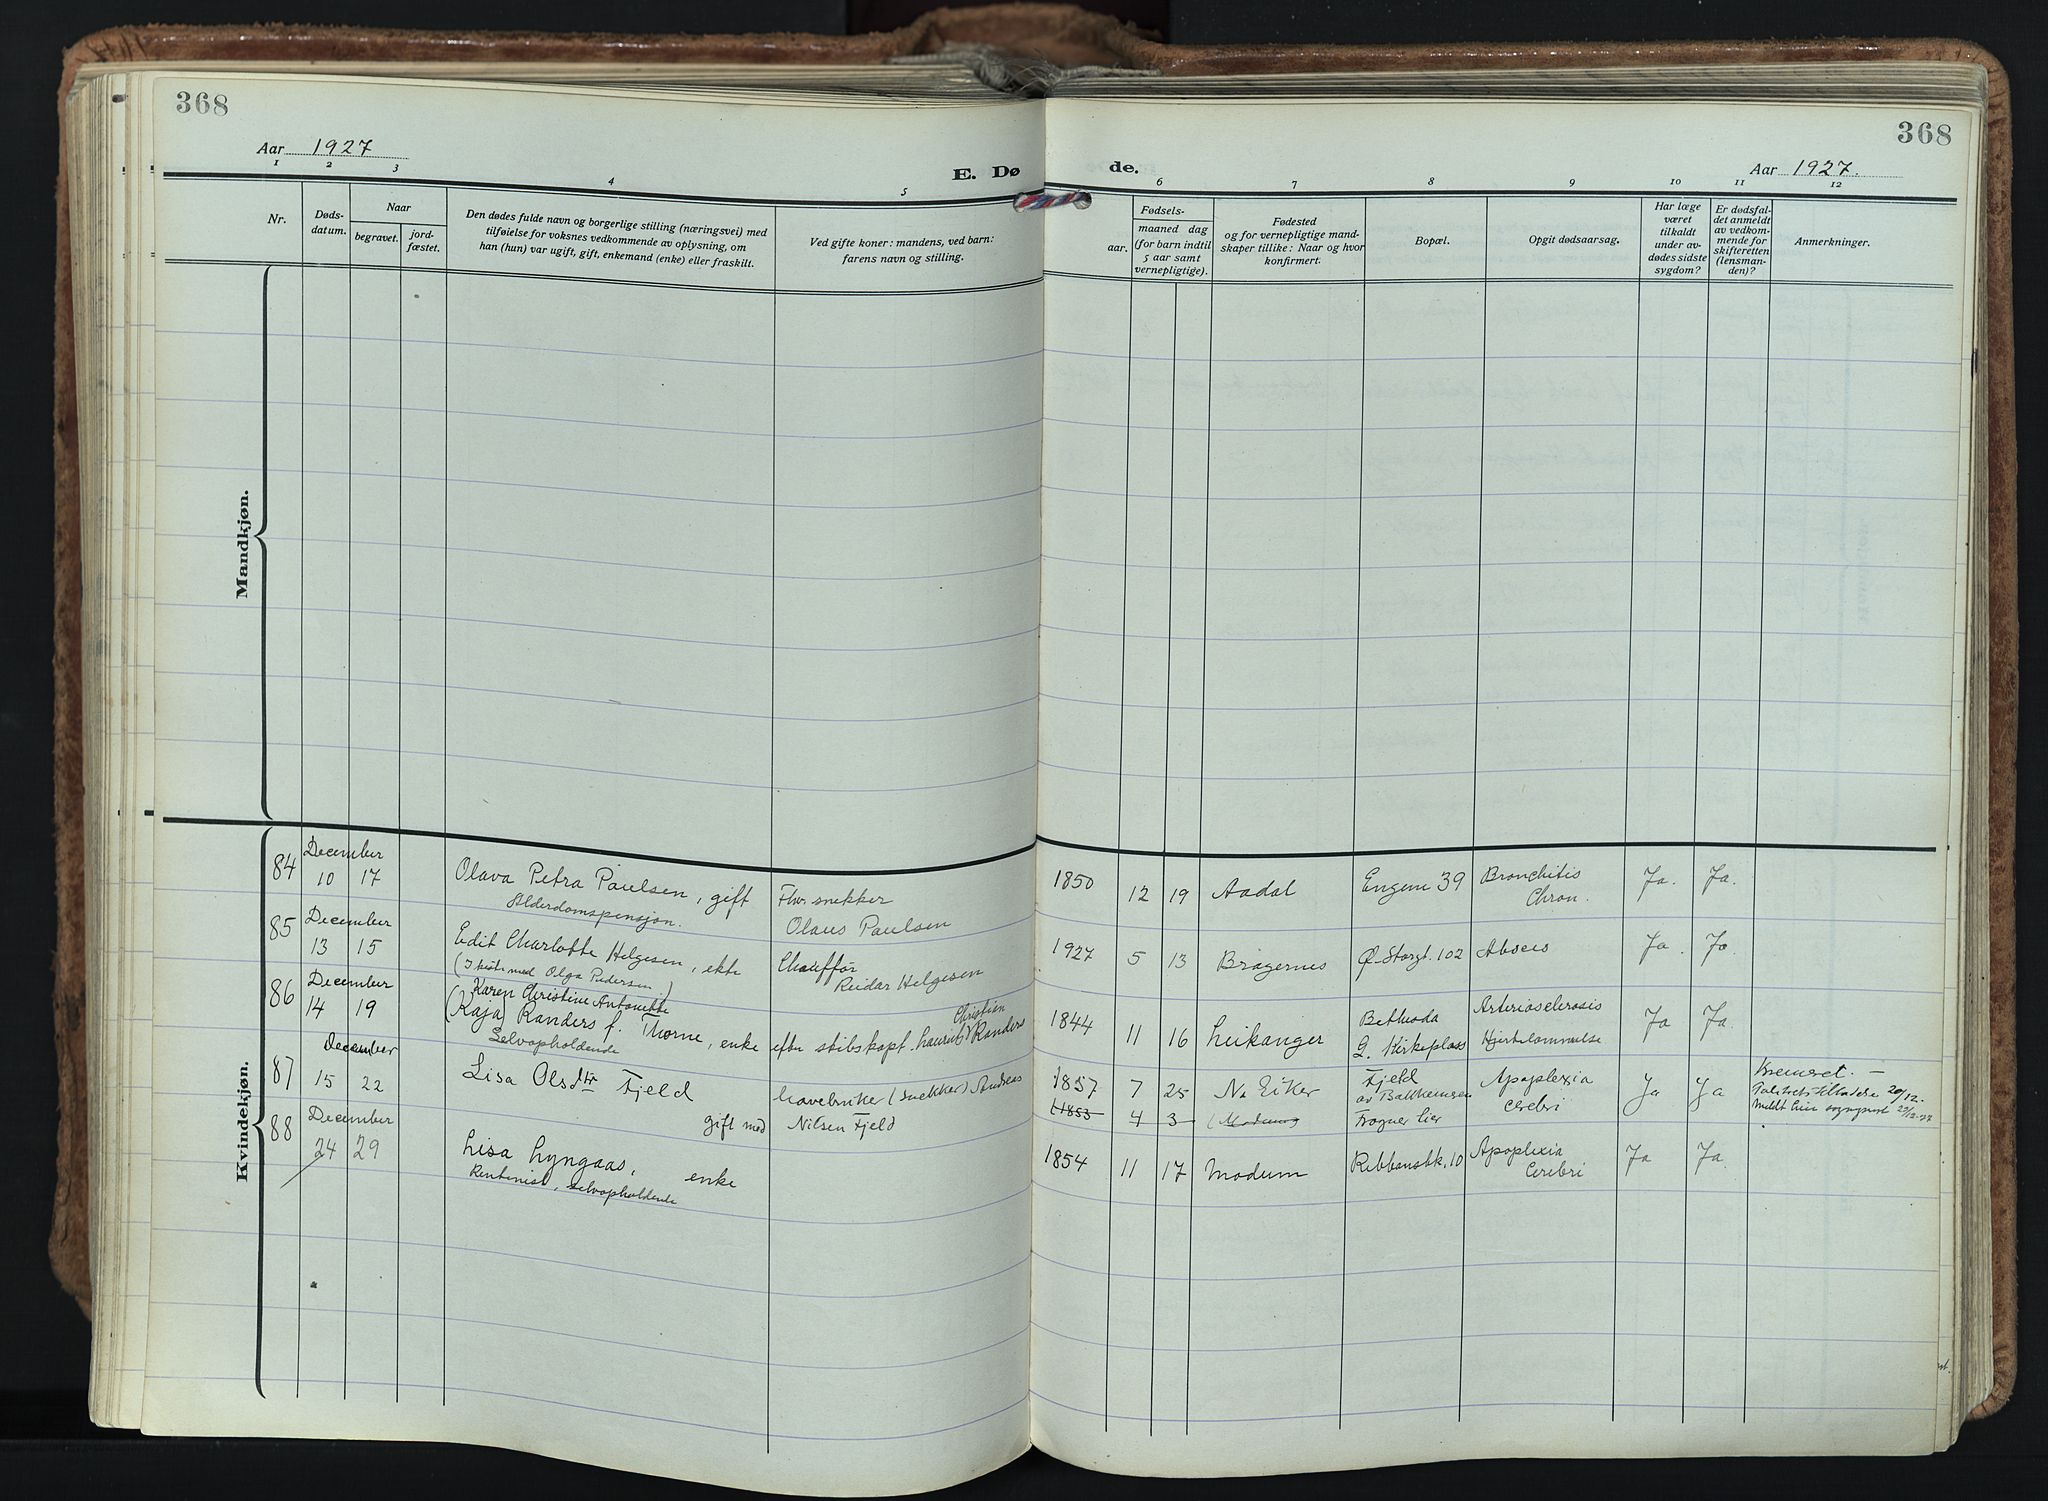 368
Aar 1927
E. Dø
1
2
3
4
5
Nr.
Døds-
datum.
Naar
begravet.
jord-
fæstet.
Den dødes fulde navn og borgerlige stilling (næringsvei) med
tilføielse for voksnes vedkommende av oplysning, om
han (hun) var ugift, gift, enkemand (enke) eller fraskilt.
Ved gifte koner: mandens, ved barn:
farens navn og stilling.
Mandkjøn.
Kvindekjøn.
84 December
10 17
Olava Petra Paulsen, gift
Alderdomspensjon.
Fhv. snekker
Olaus Paulsen
85 December
13 15
Edit Charlotte Helgesen, ekte
(I kiste med Olga Pedersen.)
Chauffør
Reidar Helgesen
86 December
14 19
Karen Christine Antonette
(Kaja) Randers f. Thorne, enke efter skibskapt. Laurits Christian Randers
Selvopholdende
87 December
15 22
Lisa Olsdtr Fjeld
gift med
Havebruker (snekker) Andreas
Nilsen Fjeld
88 December
24 29
Lisa Lyngaas, enke
Rentenist, selvopholdende
368
de.
Aar 1927.
6
7
8
9
10
11
12
aar.
Fødsels-
maaned dag
(for barn indtil
5 aar samt
vernepligtige).
Fødested
og for vernepligtige mand-
skaper tillike: Naar og hvor
konfirmert.
Bopæl.
Opgit dødsaarsag.
Har læge
været
tilkaldt
under av-
dødes sidste
sygdom?
Er dødsfal-
det anmeldt
av vedkom-
mende for
skifteretten
(lensman-
den)?
Anmerkninger.
1850 12 19 Aadal Engene 39 Bronchitis
Chron. Ja. Ja.
1927 5 13 Bragernes Ø. Storgt. 102 Absces Ja. Ja
1844 11 16 Leikanger Bethesda
G. Kirkeplass
Arteriosclerosis
Hjertelammelse Ja Ja.
1857 7 25 N. Eiker Fjeld
av
Frogner Lier
Apoplexia
Cerebri Ja Ja
(1853 4 3 (Modum)
Kremeret. —
20/12.
1854 11 17 Modum 10 Apoplexia
Cerebri Ja Ja.